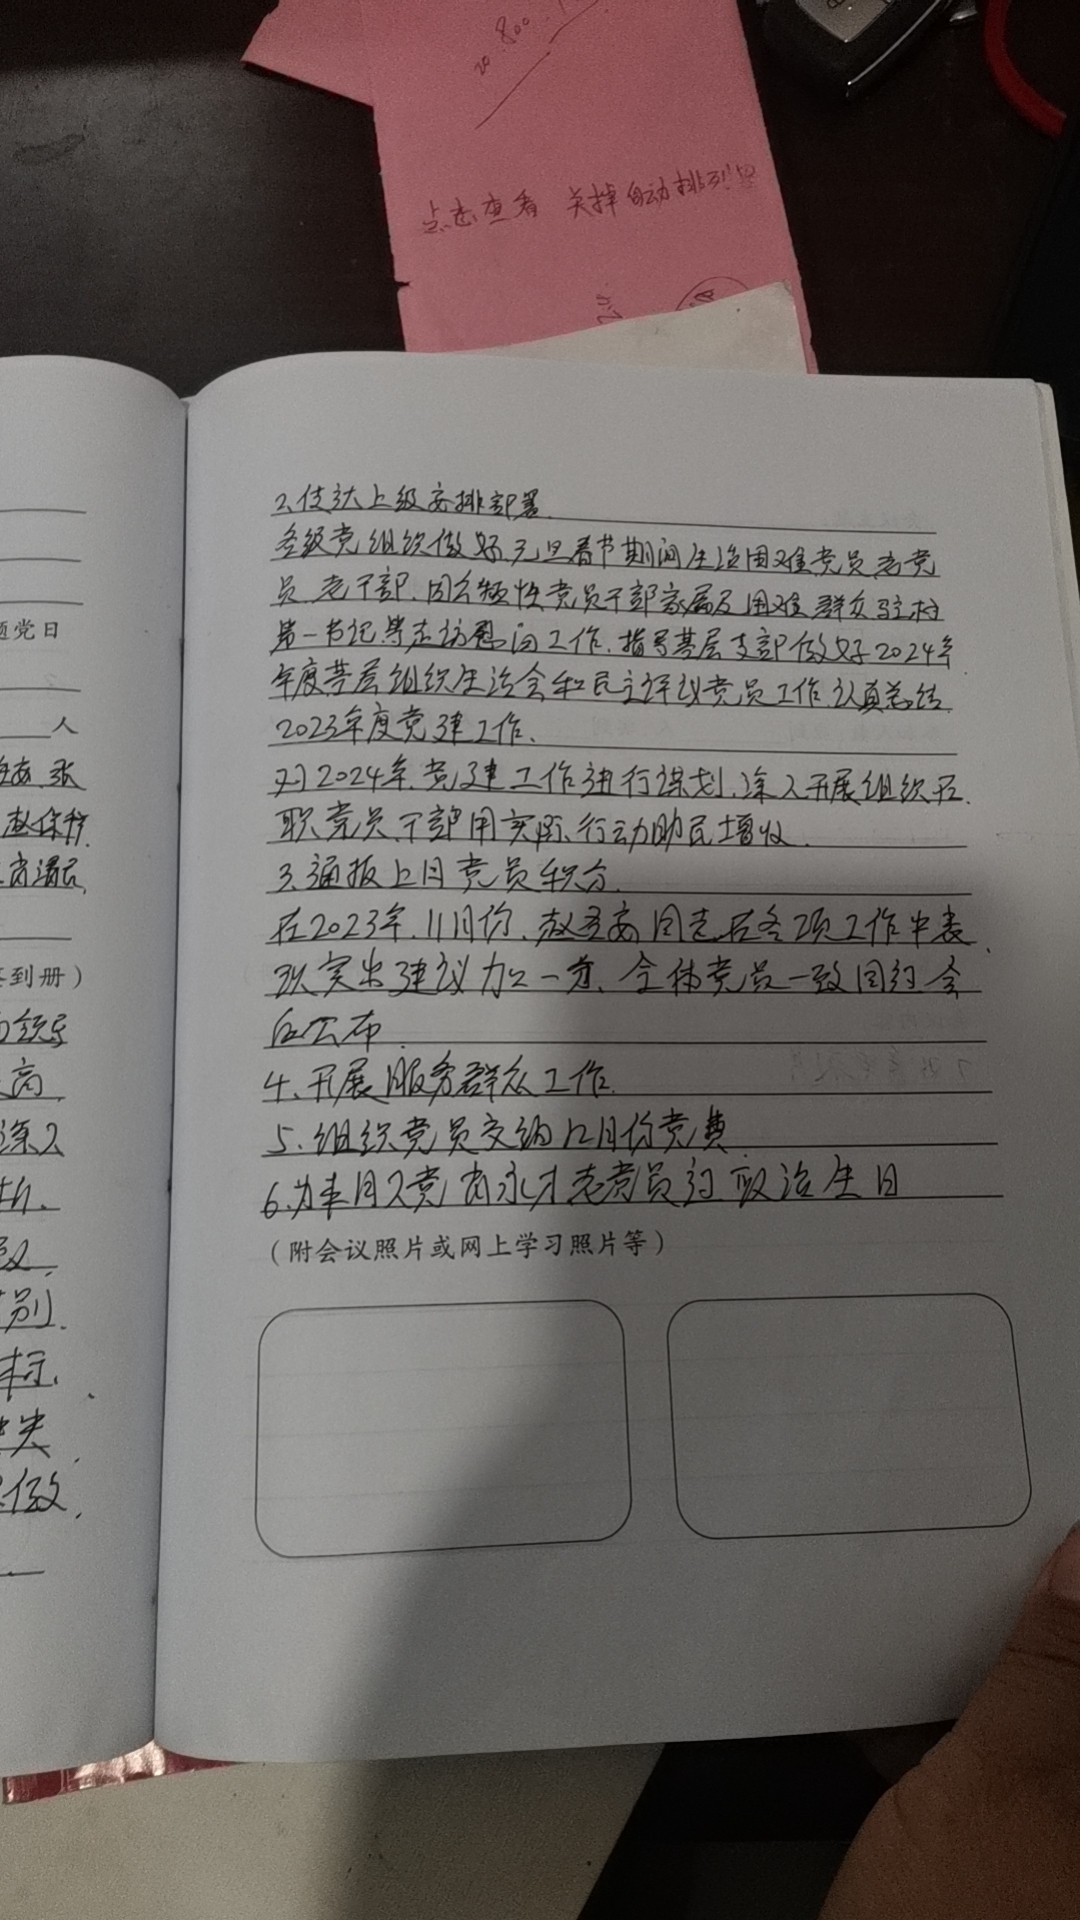 20 800
点击查看 关掉自动排列
题党日
人
张
到册）
高
深入
别
标
失
做
2、传达上级安排部署
各级党组织做好元旦春节期间生活困难党员老党
员 老干部、因公牺牲党员干部家属及困难群众驻村
第一书记等走访慰问工作、指导基层支部做好2024年
年度基层组织生活会和民主评议党员工作、认真总结
2023年度党建工作、
对2024年党建工作进行谋划、深入开展组织在
职党员干部用实际行动助民增收
3、通报上月党员积分
在2023年、11月份、同志在各项工作中表
现突出建议加2一意、全体党员一致同意会
后公布
4、开展服务群众工作
5、组织党员交纳12月份党费
6、为本月入党肖永才老党员过政治生日
（附会议照片或网上学习照片等）